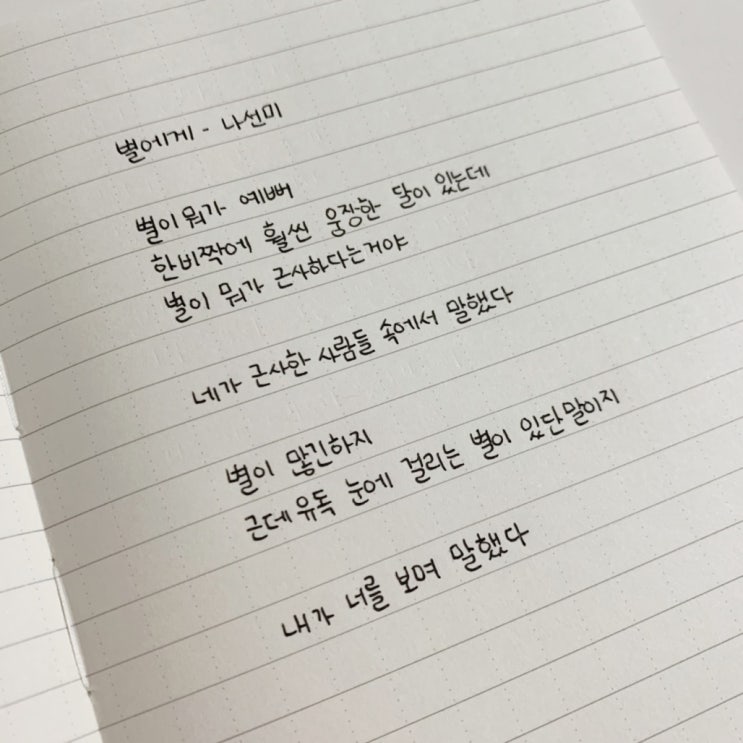 별에게 - 나선미
별이 뭐가 예뻐
한비짝에 훨씬 웅장한 달이 있는데
별이 뭐가 근사하다는거야
네가 근사한 사람들 속에서 말했다
별이 많긴하지
근데 유독 눈에 걸리는 별이 있단말이지
내가 너를 보며 말했다